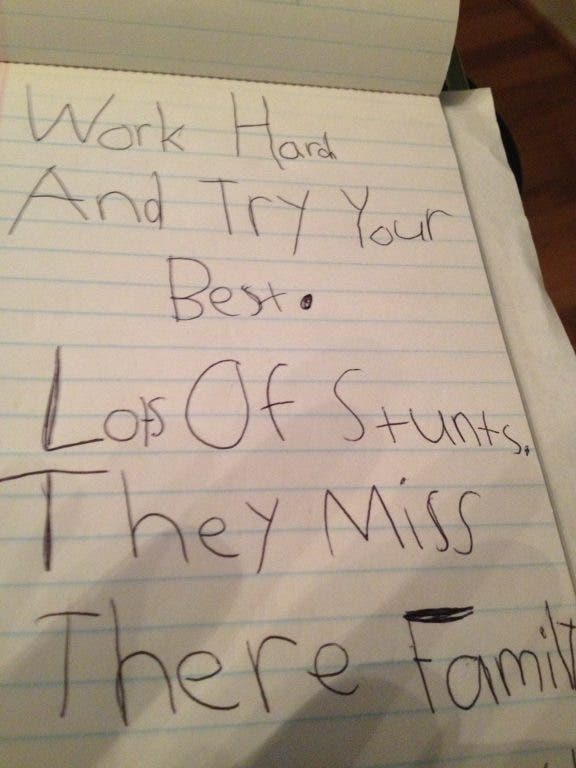 Work Hard
And Try Your
Best.
Lots Of Stunts.
They Miss
There Famil